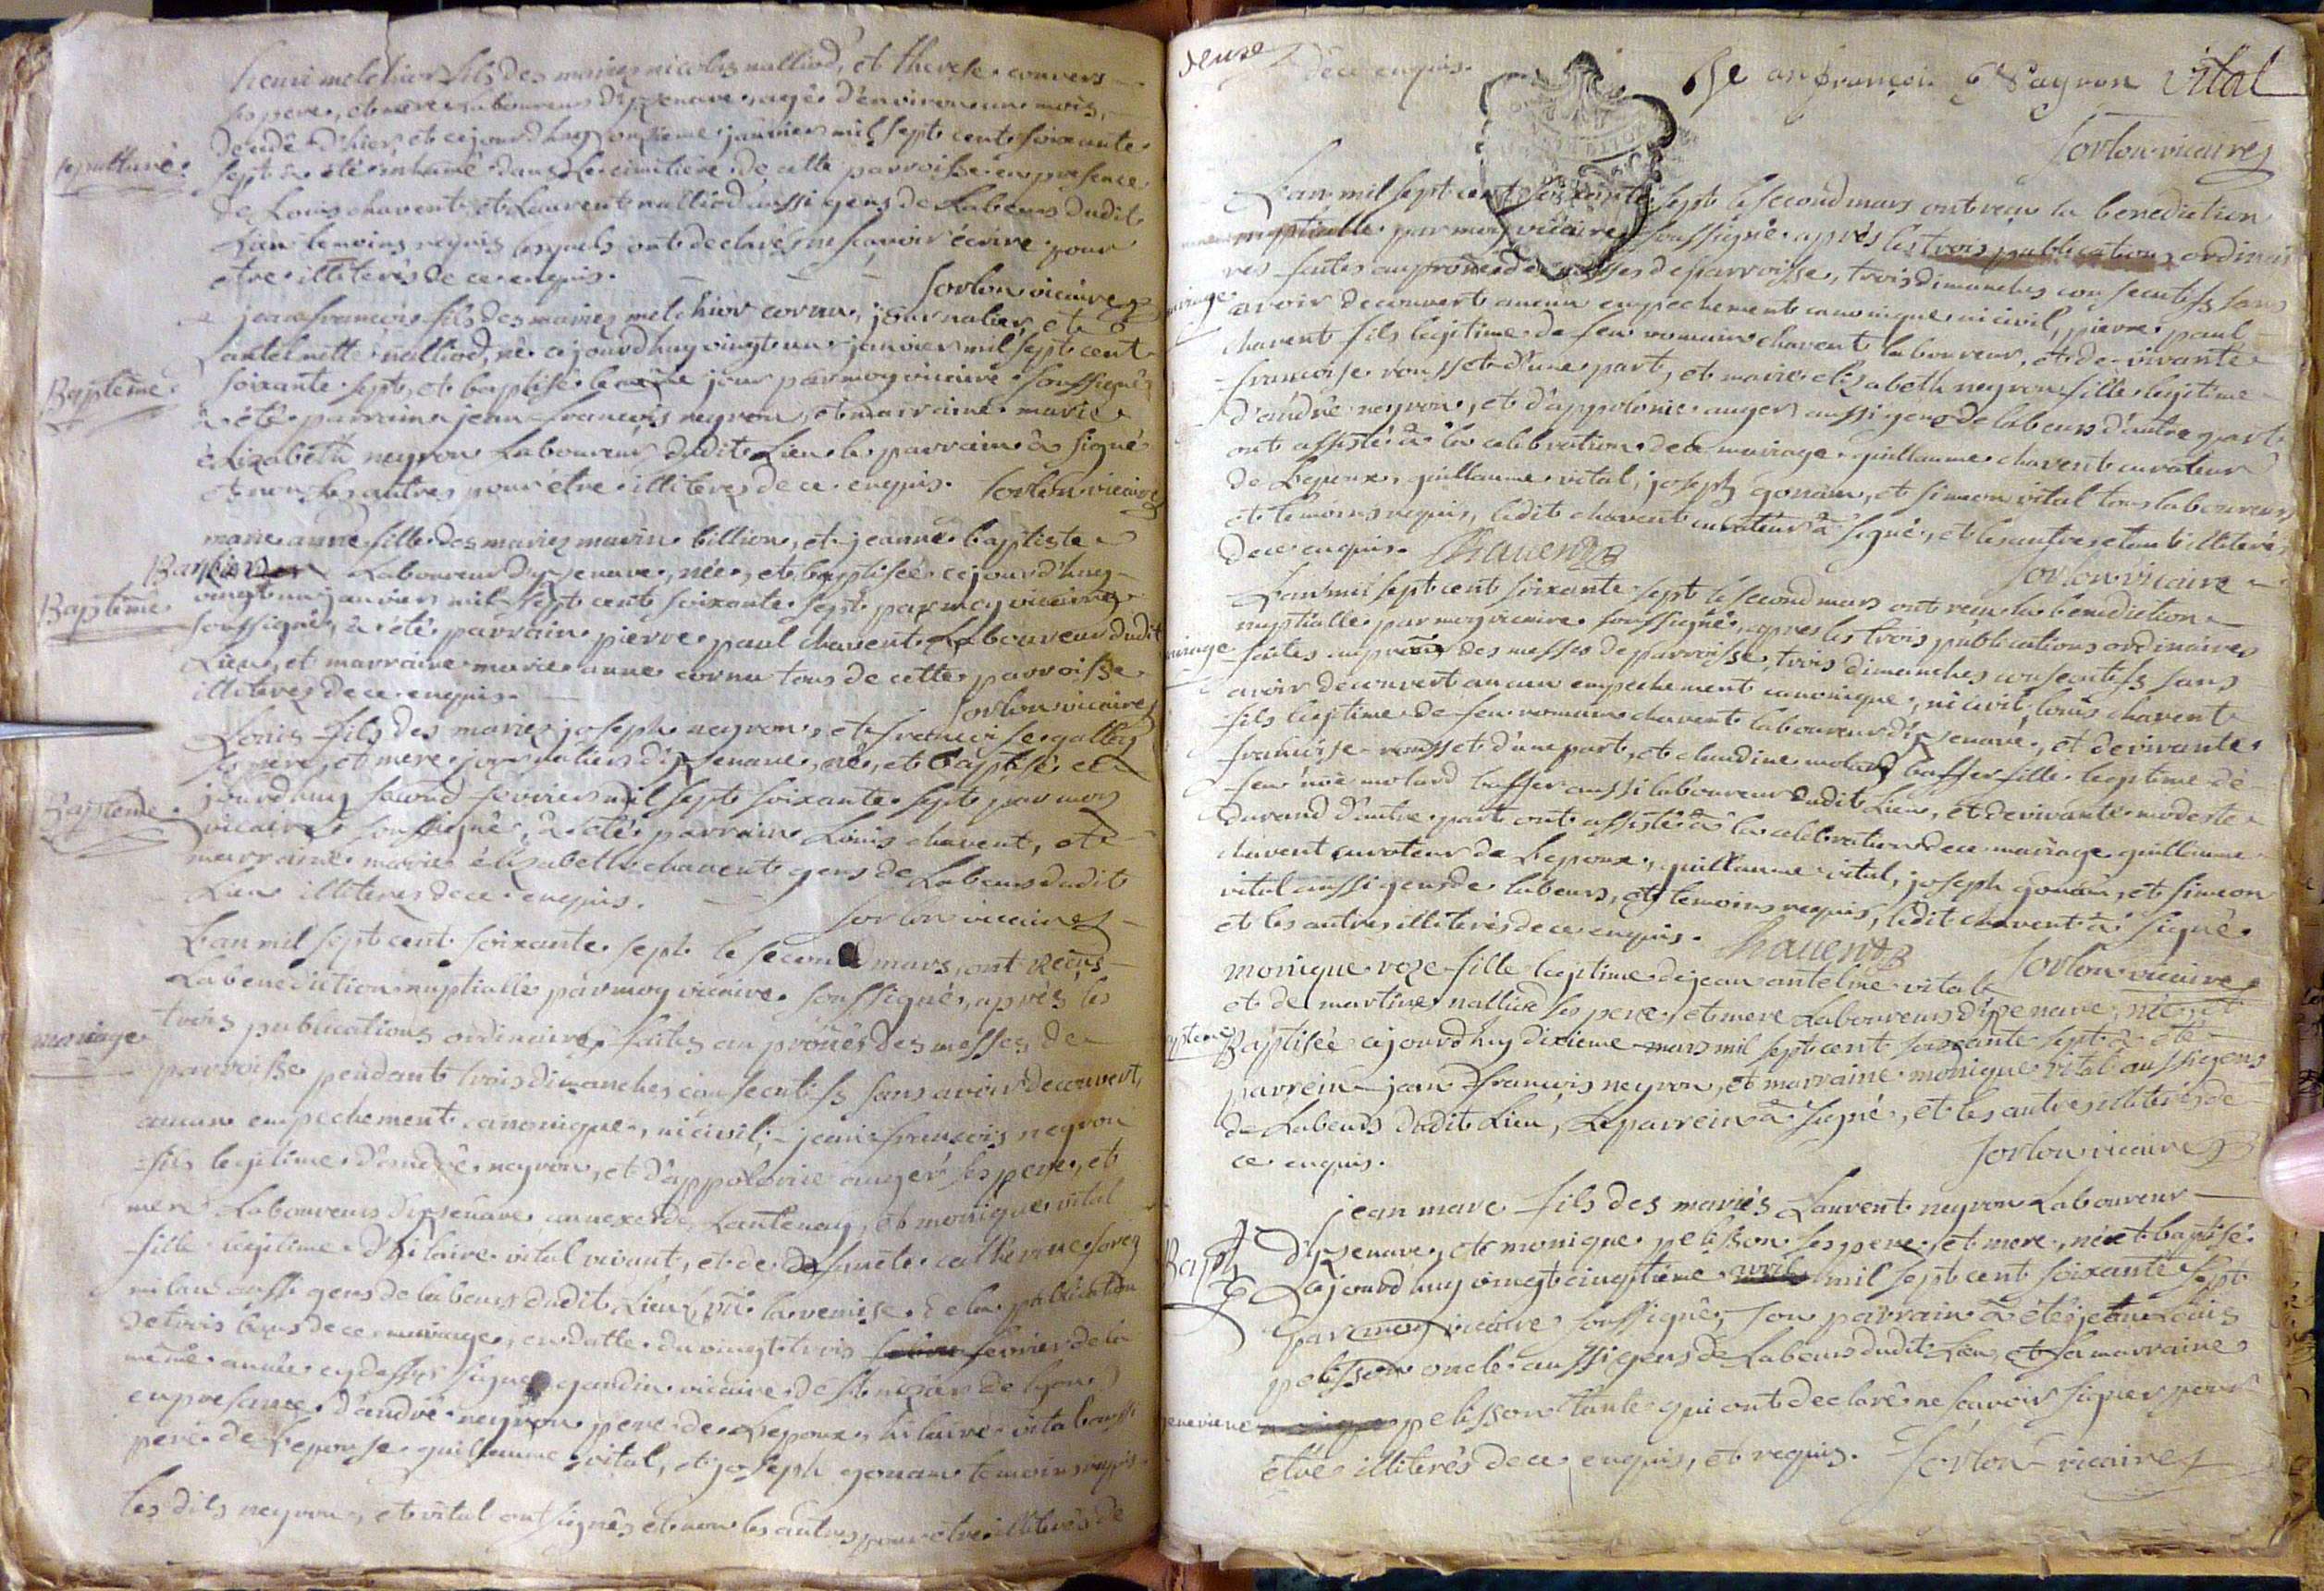 henri melchior fils des mariez nicolas nalliod, et therese convers
ses pere, et mere laboureurs d'izenave, agé d'environ un mois,
decedé d'hier, et cejourd'huy onzieme janvier mil sept cent soixante
sepulture
sept a été inhumé dans le cimitiere de cette parroisse en presence
de Louis chavent, et Laurent nalliod aussi gens de Labeurs dudit
Lieu temoins requis lesquels ont declarés ne sçavoir écrire pour
etre illiterés de ce enquis.
Sorlon vicaire
jean francois fils des mariez melchior cornu, journalier, et
antelmette nalliod, né cejourd'huy vingt un janvier mil sept cent
Baptême
soixante sept, et baptisé le même jour par moy vicaire soussigné
a été parrain jean francois neyron, et marraine marie
élizabeth neyron Laboureurs dudit Lieu le parrain a signé
et non les autres pour être illiteres de ce enquis. Sorlon vicaire
marie anne fille des mariez marin billion, et jeanne baptiste
Laboureur d'izenave, née, et baptisée cejourd'huy
Baptême
vingt un janvier mil sept cent soixante sept par moy vicaire
soussigné, a été parrain pierre paul chavent Laboureur dudit
Lieu, et marraine marie anne cornu tous de cette parroisse
illiteres de ce enquis.
Sorlon vicaire
Louis fils des mariez joseph neyron, et francoise gallay
ses pere, et mere journaliers d'izenave, né, et baptisé ce
jourd'huy second fevrier mil sept soixante sept par moy
Baptême
vicaire soussigné, a été parrain Louis chavent, et
marraine marie élizabeth chavent gens de Labeurs dudit
Lieu illiteres de ce enquis.
Sorlon vicaire
L'an mil sept cent soixante sept le second mars, ont reçus
La benediction nuptialle par moy vicaire soussigné, après les
mariage
trois publications ordinaires faites aux prônes des messes de
parroisse pendant trois dimanches consecutifs sans avoir decouvert
aucun empechement canonique, ni civil, jean francois neyron
fils legitime d'andré neyron, et d'appolonie auger ses pere, et
mere Laboureurs d'izenave annexe de Lantenay, et monique vital
fille legitime d'hilaire vital vivant, et de defunte catherine
milan aussi gens de labeurs dudit Lieu, vû la remise de la publication
de trois bans de ce mariage, en datte du vingt trois fevrier de la
même année cy dessus signé gandin vicaire de st nizier de lyon
en presance d'andré neyron pere de L'epoux, hilaire vital aussi
pere de L'epouse guillaume vital, et joseph gonam temoins requis
les dits neyron, et vital ont signés et non les autres pour etre illiterés de
deuze
de ce enquis.
jean françoi Nayron vital
Sorlon vicaire
L'an mil sept cent soixante sept le second mars ont reçu la benediction
nuptialle par moy vicaire soussigné après les trois publications ordinai
res faites aux prônes des messes de parroisse, trois dimanches consecutifs sans
mariage
avoir decouvert aucun empechement canonique ni civil, pierre paul
chavent fils legitime de feu romain chavent laboureur, et de vivante
francoise rousset d'une part, et marie elizabeth neyron fille legitime
d'andré neyron, et d'appolonie auger aussi gens de labeurs d'autre part
ont assisté à la celebration de ce mariage guillaume chavent curateur
de L'epoux, guillaume vital, joseph gonam, et simeon vital tous laboureurs
et temoins requis, ledit chavent curateur a signé, et les autres etant illiterés
de ce enquis. Chavent
Sorlon vicaire
L'an mil sept cent soixante sept le second mars ont reçu la benediction
nuptialle par moy vicaire soussigné, apres les trois publications ordinaires
mariage
faites au prône des messes de parroisse, trois dimanches consecutifs sans
avoir decouvert aucun empechement canonique, ni civil, louis chavent
fils legitime de feu romain chavent laboureur d'izenave, et de vivante
francoise rousset d'une part, et claudine molard fille legitime de
feu molard aussi laboureur dudit Lieu, et de vivante modeste
durand d'autre part ont assisté à la celebration de ce mariage guillaume
chavent curateur de L'epoux, guillaume vital, joseph gonam, et simeon
vital aussi gens de labeurs, et temoins requis, ledit chavent a signé
et les autres illiterés de ce enquis. Chavent
Sorlon vicaire
monique roze fille legitime de jean antelme vital
et de martine nalliod ses pere, et mere Laboureurs d'izenave, née, et
Baptisée cejourd'huy dixieme mars mil sept cent soixante sept a été
parrein jean francois neyron, et marraine monique vital aussi gens
de Labeurs dudit Lieu, Le parrein a signé, et les autres illiterés de
ce enquis.
Sorlon vicaire
jean marc fils des mariés Laurent neyron Laboureur
Bapt
d'izenave, et monique pelisson ses pere, et mere, né et baptisé
cejourd'huy vingt cinqtième avril mil sept cent soixante sept
par moy vicaire soussigné, son parrain a été jean Louis
pelisson oncle aussi gens de Labeurs dudit Lieu, et sa marraine
genevieve pelisson tante qui ont declaré ne sçavoir signer pour
étre illiterés de ce enquis, et requis. Sorlon vicaire